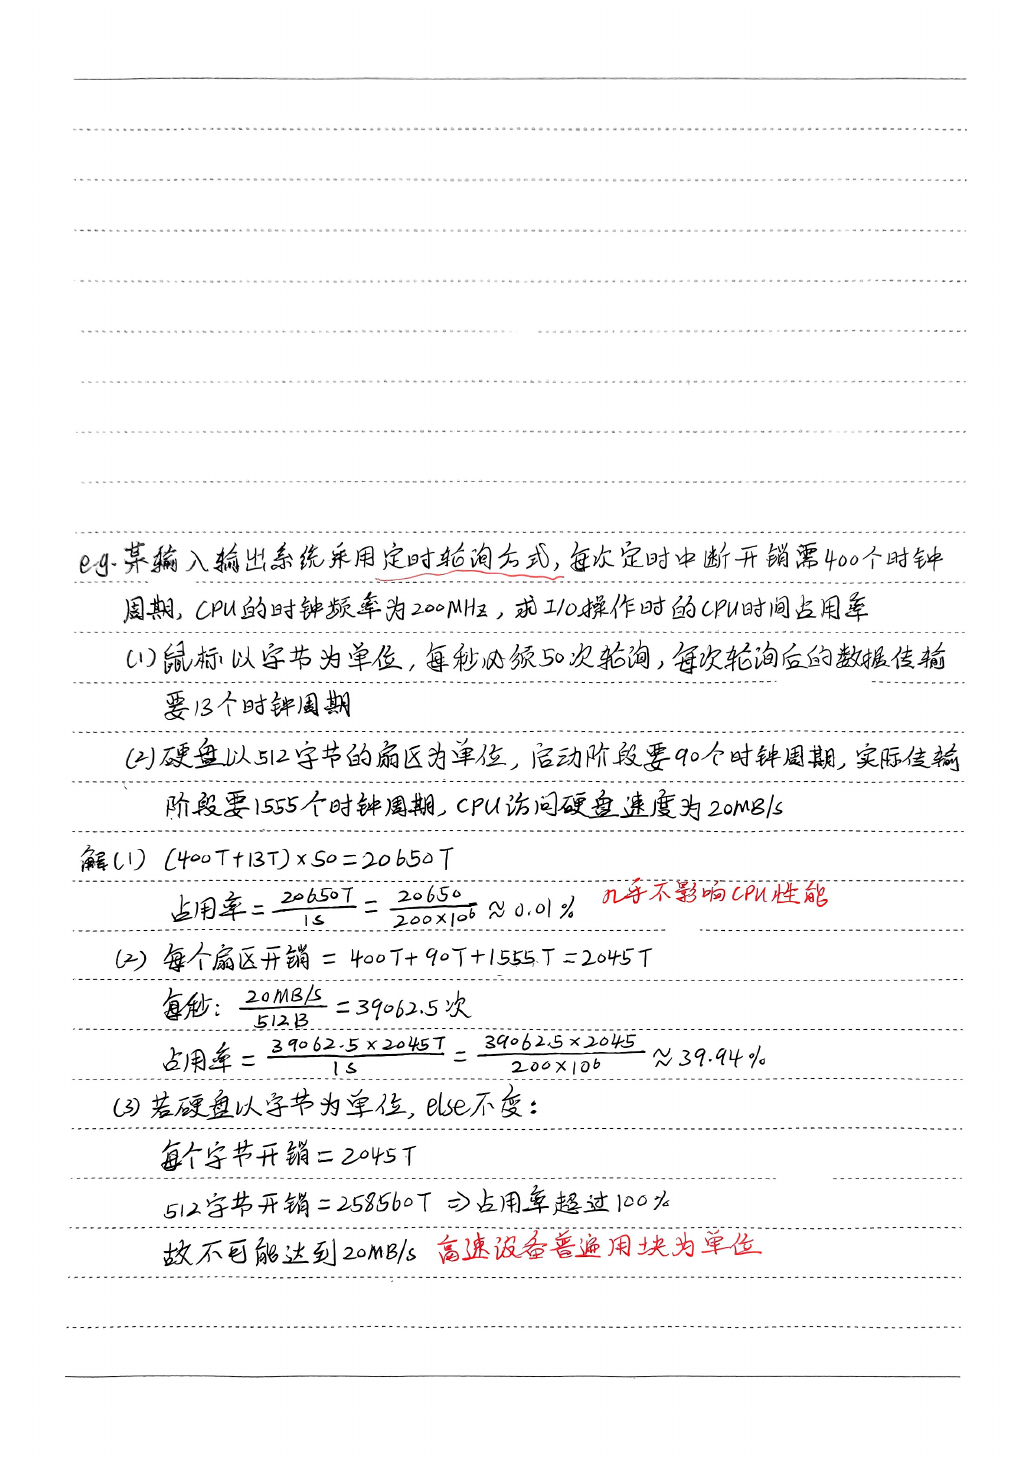 e.g.某输入输出系统采用定时轮询方式,每次定时中断开销需400个时钟
周期, CPU的时钟频率为200MHz, 求I/O操作时的CPU时间占用率
(1)鼠标以字节为单位, 每秒必须50次轮询, 每次轮询后的数据传输
要13个时钟周期
(2)硬盘以512字节的扇区为单位, 启动阶段要90个时钟周期, 实际传输
阶段要1555个时钟周期, CPU访问硬盘速度为20MB/s
解(1) (400T+13T)×50=20650T
占用率 = 20650T/1s = 20650/200×10⁶ ≈ 0.01% 几乎不影响CPU性能
(2) 每个扇区开销 = 400T+90T+1555T=2045T
每秒: 20MB/s/512B = 39062.5次
占用率 = 39062.5×2045T/1s = 39062.5×2045/200×10⁶ ≈ 39.94%
(3) 若硬盘以字节为单位, else不变:
每个字节开销 = 2045T
512字节开销=258560T ⇒ 占用率超过100%
故不可能达到20MB/s 高速设备普遍用块为单位